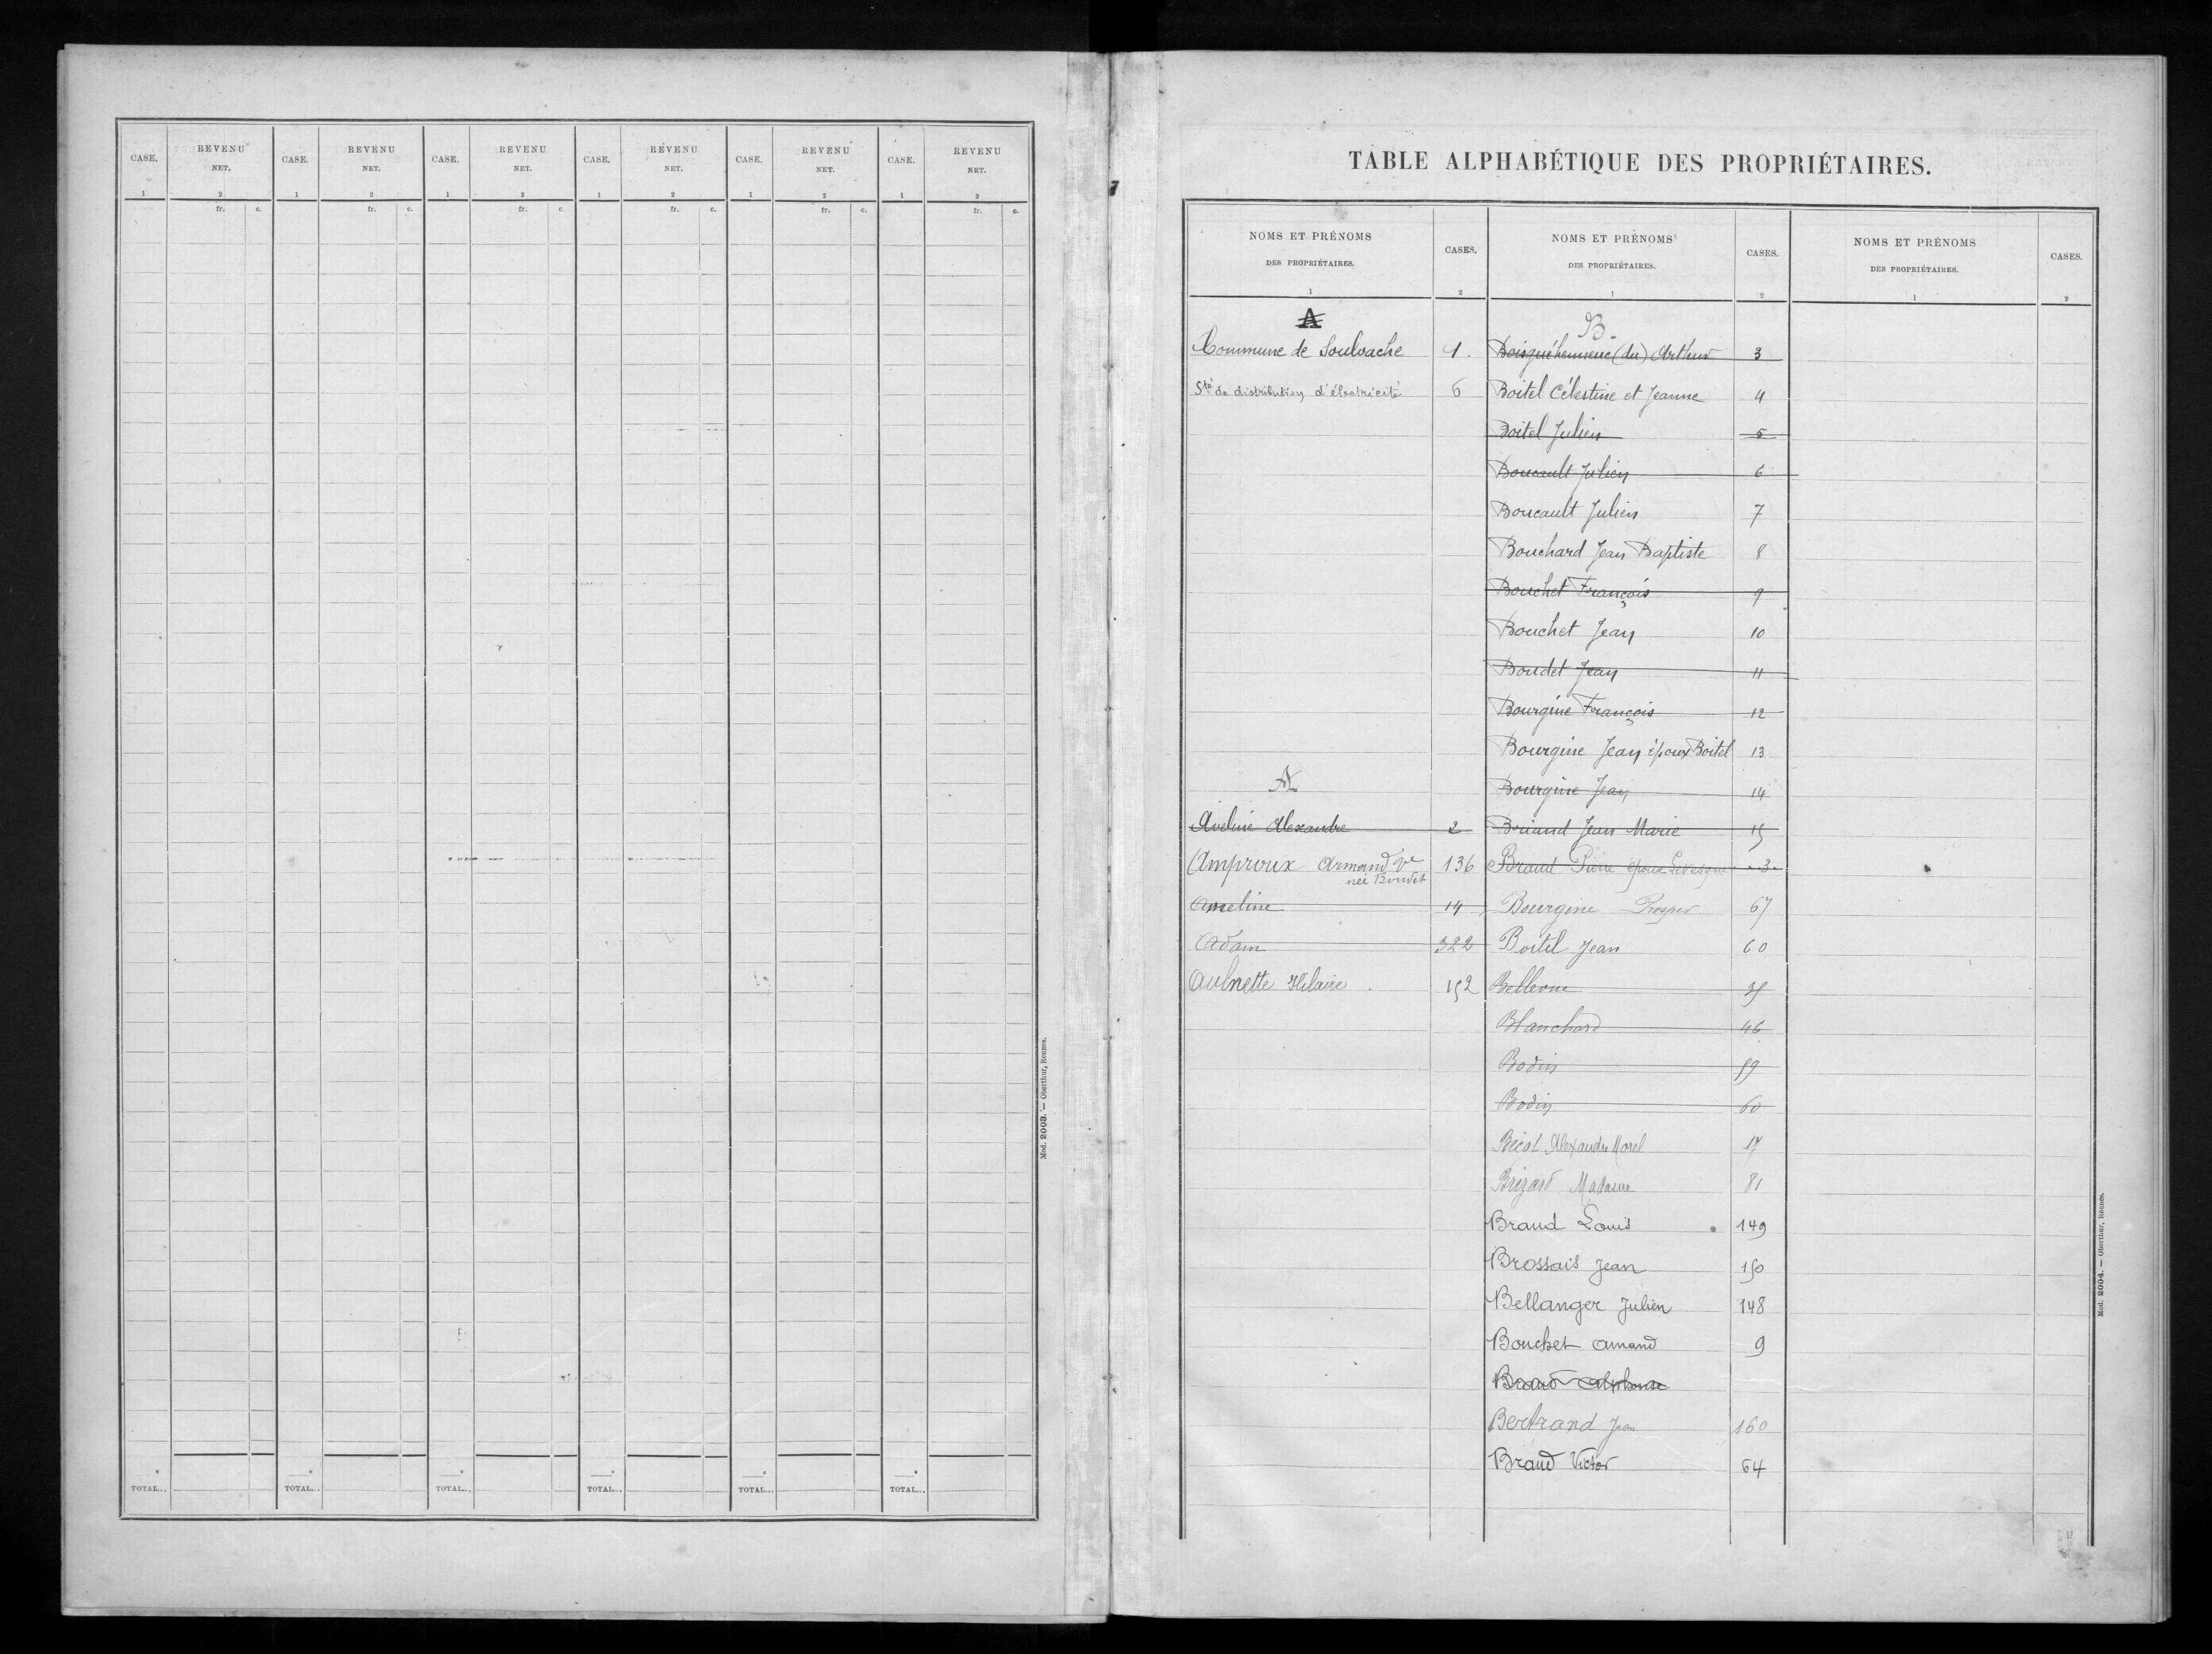 CASE. REVENU NET. CASE. REVENU NET. CASE. REVENU NET. CASE. REVENU NET. CASE. REVENU NET. CASE. REVENU NET.
1 2 1 2 1 2 1 2 1 2 1 2
fr. c. fr. c. fr. c. fr. c. fr. c. fr. c.
TOTAL... TOTAL... TOTAL... TOTAL... TOTAL... TOTAL...
Mod. 2003. — Oberthur, Rennes.
TABLE ALPHABÉTIQUE DES PROPRIÉTAIRES.
NOMS ET PRÉNOMS DES PROPRIÉTAIRES. CASES. NOMS ET PRÉNOMS DES PROPRIÉTAIRES. CASES. NOMS ET PRÉNOMS DES PROPRIÉTAIRES. CASES.
1 2 1 2 1 2
A
Commune de Soulvache 1.
Sté de distribution d'électricité 6
A
Aveline Alexandre 2
Amproux Armand Ve 136
née Boudet
Ameline 14
Adam 322
Aulnette Hilaire 152
B.
Boisguéhenneuc (du) Arthur 3
Boitel Célestine et Jeanne 4
Boitel Julien 5
Boucault Julien 6
Boucault Julien 7
Bouchard Jean Baptiste 8
Bouchet François 9
Bouchet Jean 10
Boudet Jean 11
Bourgine François 12
Bourgine Jean époux Boitel 13
Bourgine Jean 14
Briand Jean Marie 15
Braud Pierre époux Levesque 3
Bourgine Prosper 67
Boitel Jean 60
Bellevue 35
Blanchard 46
Bodin 59
Bodin 60
Bécot Alexandre Morel 17
Brizard 81
Braud Louis 149
Brossais Jean 150
Bellanger Julien 148
Bouchet Amand 9
Braud Alphonse
Bertrand Jean 160
Braud Victor 64
Mod. 2004. — Oberthur, Rennes.